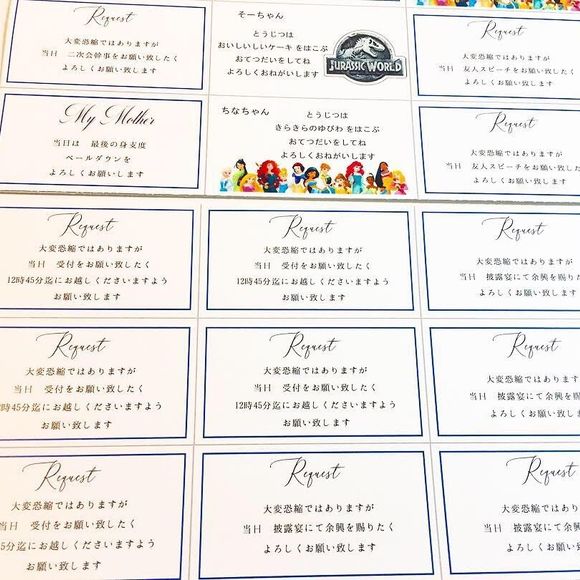 Request
大変恐縮ではありますが
当日 二次会幹事をお願い致したく
よろしくお願い致します
そーちゃん
とうじつは
おいしいしいケーキ をはこぶ
おてつだいをしてね
よろしくおねがいします
JURASSIC WORLD
Request
大変恐縮ではありますが
当日 友人スピーチをお願い致したく
よろしくお願い致します
My Mother
当日は 最後の身支度
ベールダウンを
お願いします
ちなちゃん
とうじつは
きらきらのゆびわ をはこぶ
おてつだいをしてね
よろしくおねがいします
Request
大変恐縮ではありますが
当日 友人スピーチをお願い致したく
よろしくお願い致します
Request
大変恐縮ではありますが
当日 受付をお願い致したく
12時45分迄にお越しくださいますよう
お願い致します
Request
大変恐縮ではありますが
当日 受付をお願い致したく
12時45分迄にお越しくださいますよう
お願い致します
Request
大変恐縮ではありますが
当日 披露宴にて余興を賜りたく
よろしくお願い致します
Request
大変恐縮ではありますが
当日 受付をお願い致したく
12時45分迄にお越しくださいますよう
お願い致します
Request
大変恐縮ではありますが
当日 受付をお願い致したく
12時45分迄にお越しくださいますよう
お願い致します
Request
大変恐縮ではありますが
当日 披露宴にて余興を賜り
よろしくお願い致します
Request
大変恐縮ではありますが
当日 受付をお願い致したく
5分迄にお越しくださいますよう
お願い致します
Request
大変恐縮ではありますが
当日 披露宴にて余興を賜りたく
よろしくお願い致します
Request
大変恐縮ではありますが
当日 披露宴にて余興を賜り
よろしくお願い致します